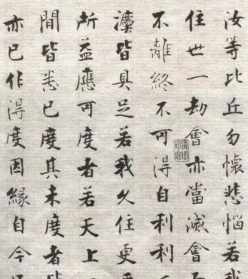 汝等比丘勿懷悲惱若
住世一劫會亦當滅會
不離終不可得自利利
灋皆具足若我久住更
所益應可度者若天上
間皆悉已度其未度者
亦已作得度因緣自今